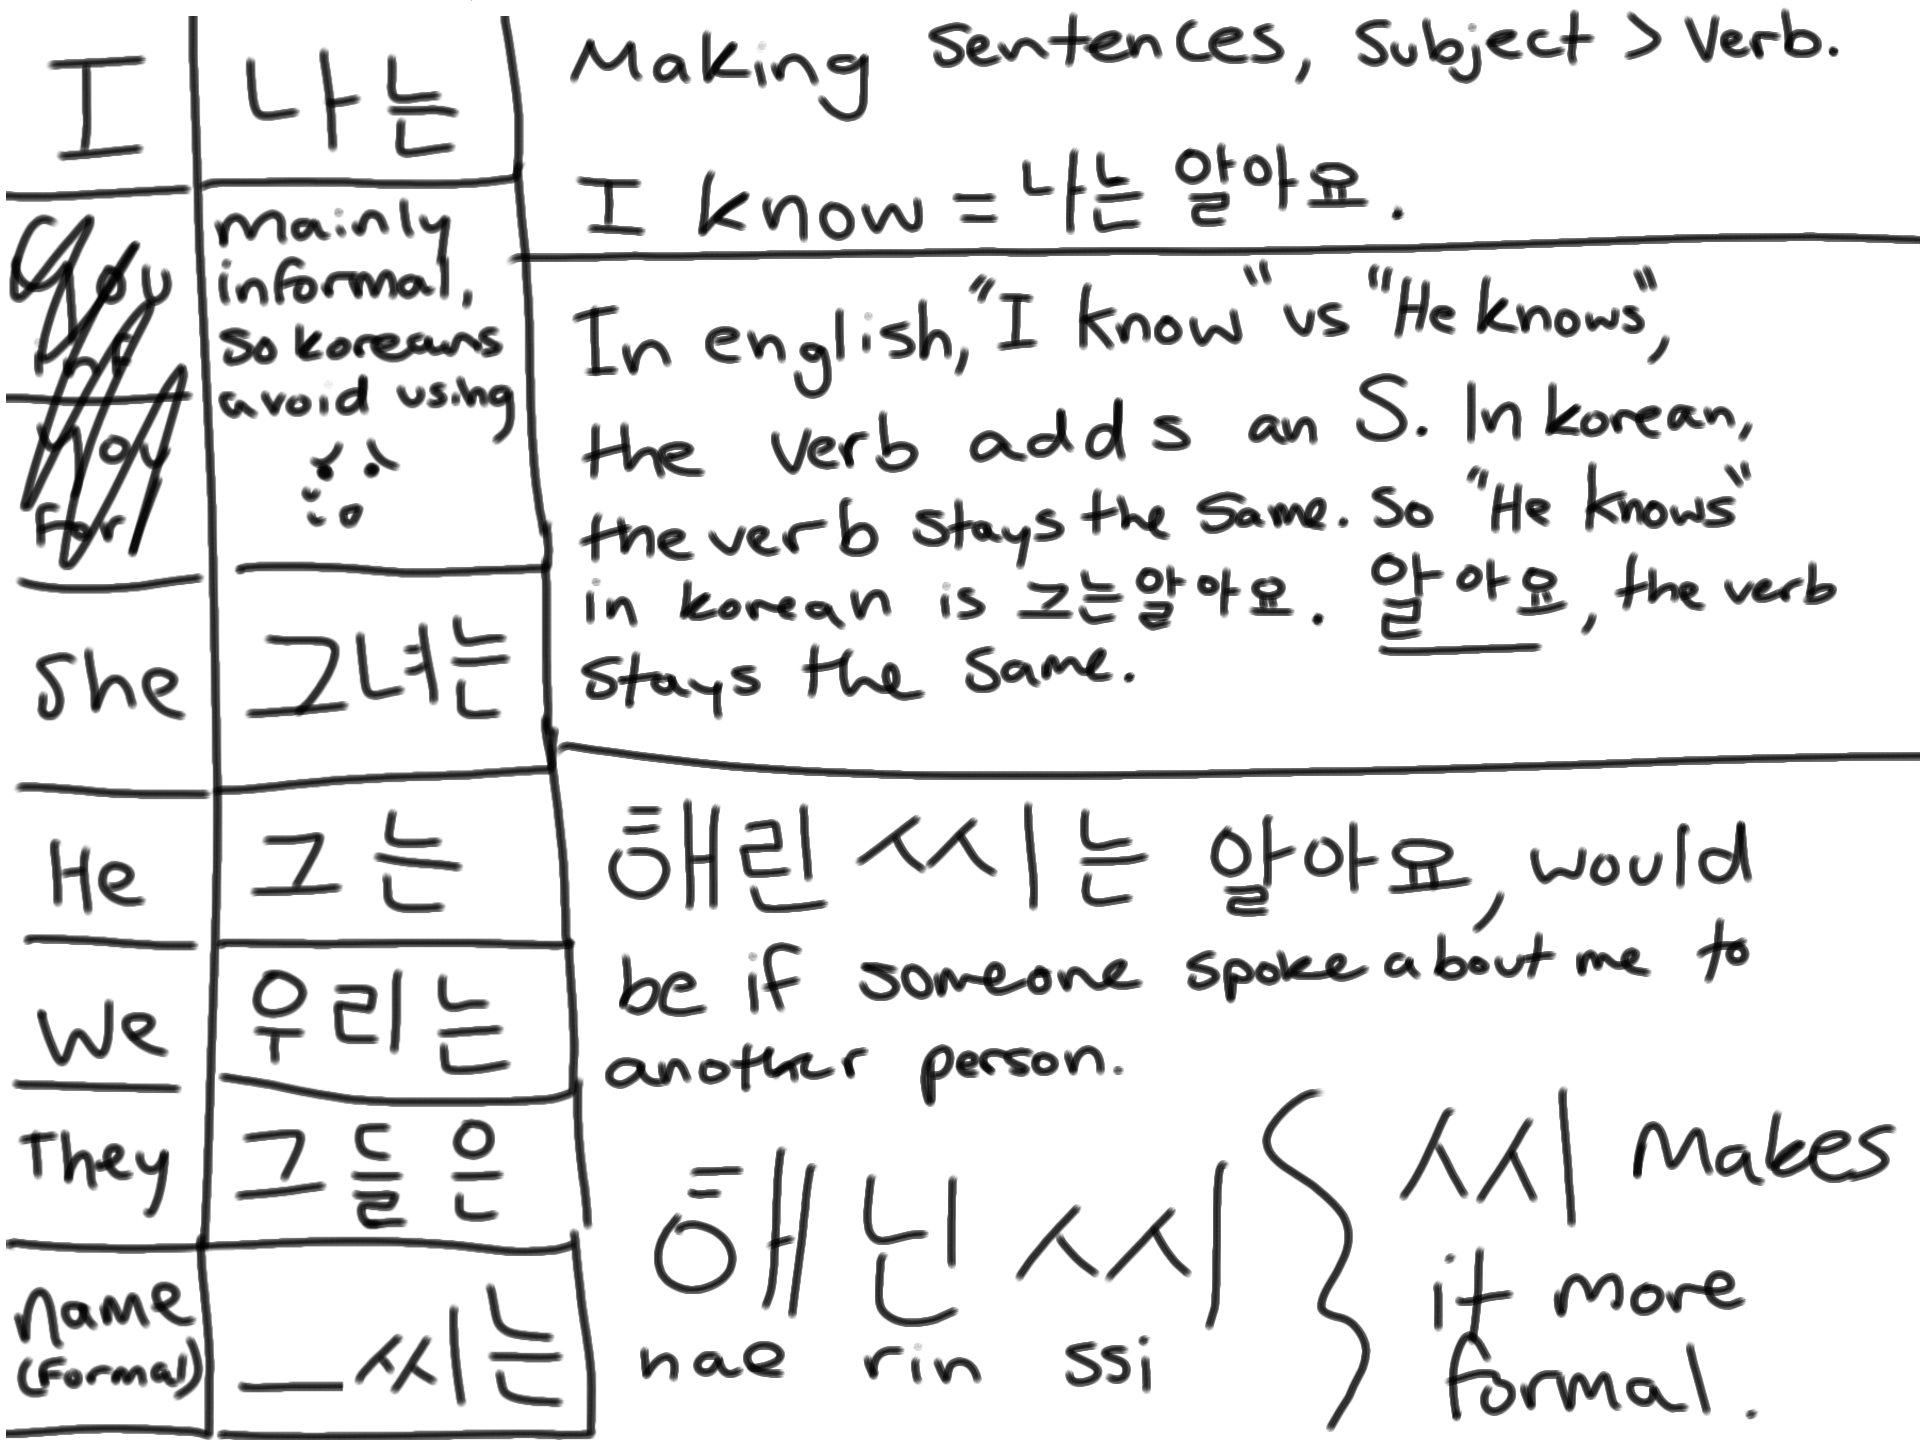 I
나는
mainly
informal,
so koreans
avoid using
She
그녀는
He
그는
We
우리는
They
그들은
name
(Formal)
__씨는
Making sentences, Subject > Verb.
I know = 나는 알아요.
In english, "I know" vs "He knows",
the verb adds an S. In korean,
the verb stays the same. So "He knows"
in korean is 그는알아요. 알아요, the verb
stays the same.
해린 씨는 알아요, would
be if someone spoke about me to
another person.
헤닌 씨
hae rin ssi
씨 Makes
it more
formal.